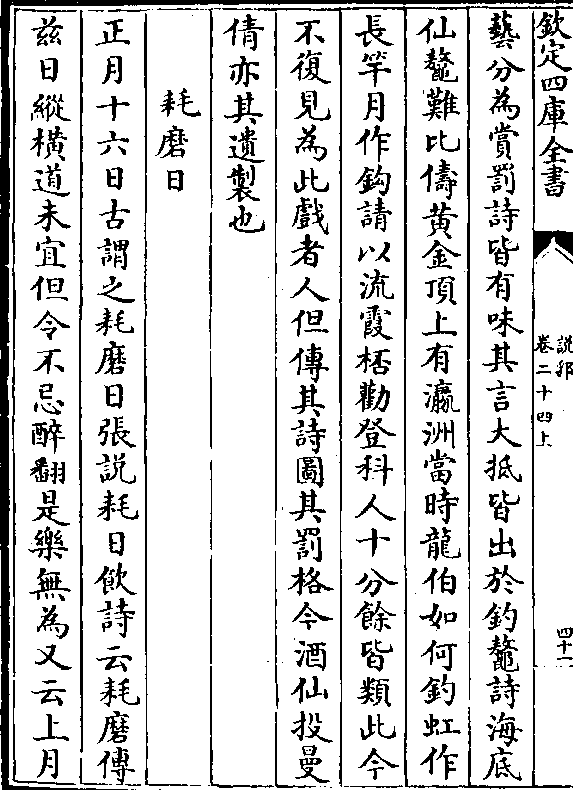 欽定四庫全書
說郛
卷二十四上
四十一
藝分為賞罰詩皆有味其言大抵皆出於釣鼇詩海底
仙鼇難比儔黄金頂上有瀛洲當時龍伯如何釣虹作
長竿月作鈎請以流霞桮勸登科人十分餘皆類此今
不復見為此戲者人但傳其詩圖其罰格今酒仙投曼
倩亦其遺製也
耗磨日
正月十六日古謂之耗磨日張說耗日飲詩云耗磨傳
兹日縱横道未宜但令不忌醉翻是樂無為又云上月